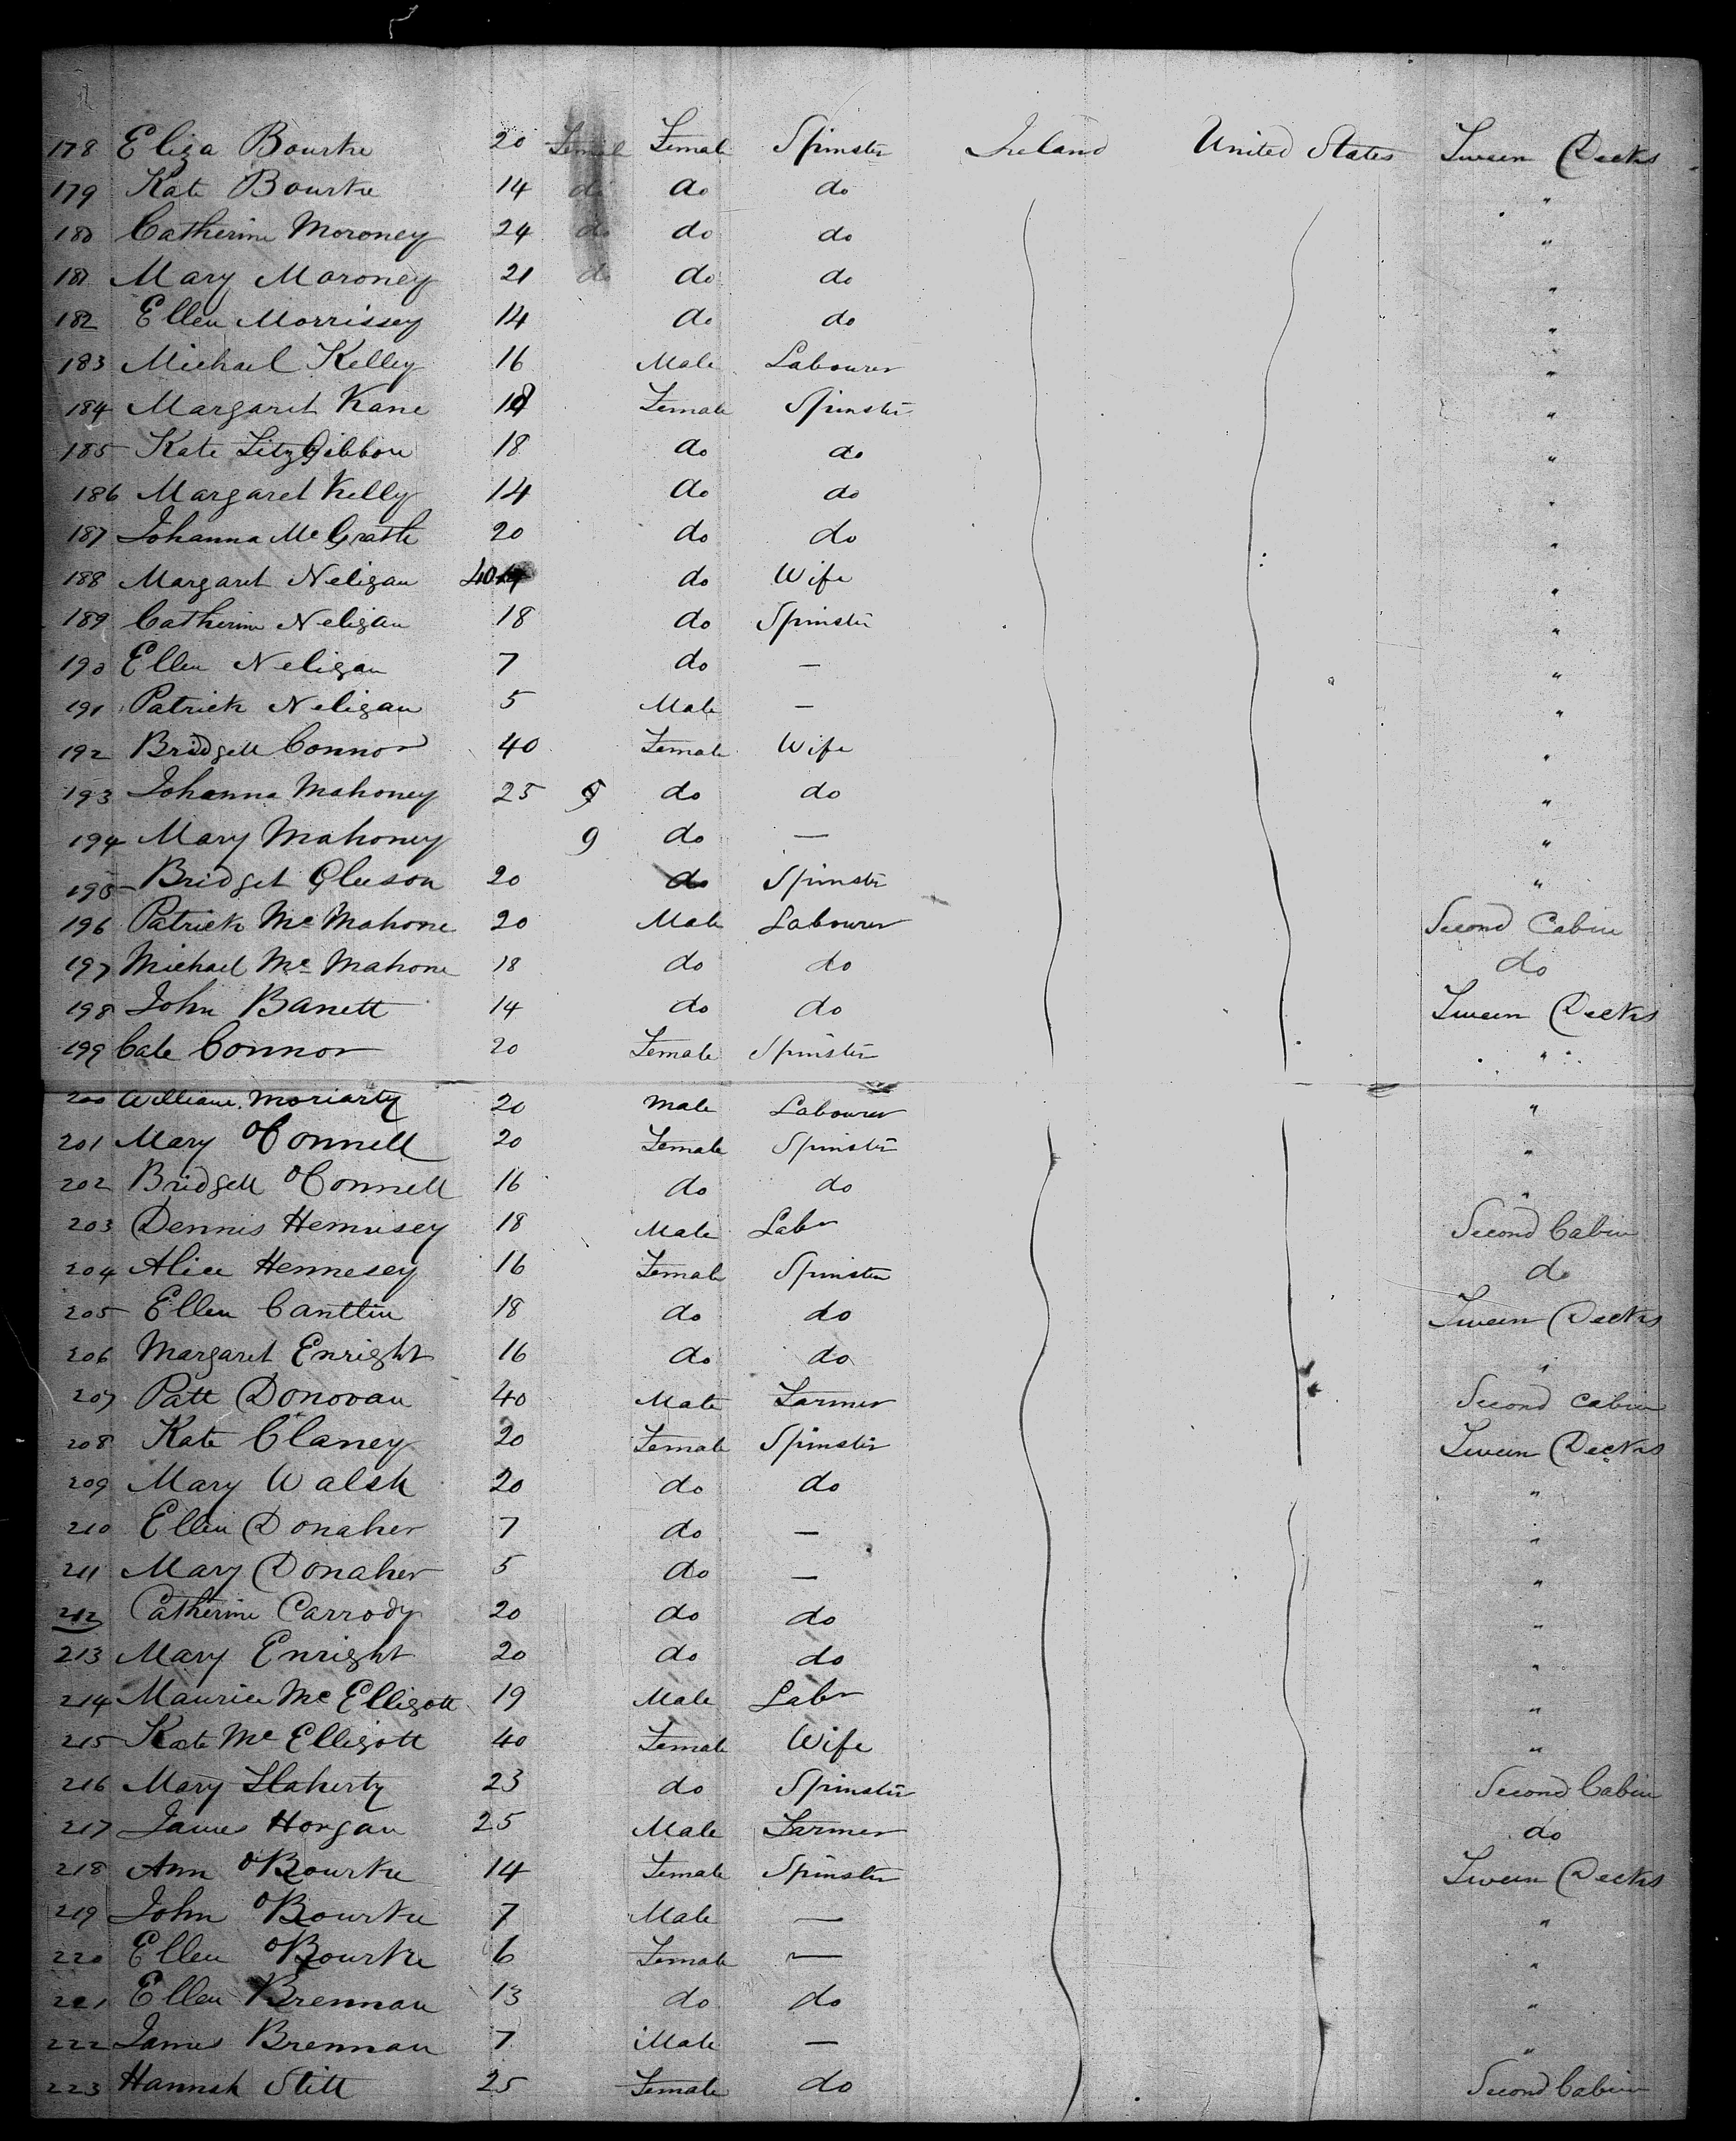 178 Eliza Bourke 20 Female Female Spinster Ireland United States Tween Decks
179 Kate Bourke 14 do do do "
180 Catherine Moroney 24 do do do "
181 Mary Moroney 21 do do do "
182 Ellen Morrissey 14 do do "
183 Michael Kelley 16 Male Labourer "
184 Margaret Kane Female Spinster "
185 Kate FitzGibbon 18 do do "
186 Margaret Kelly 14 do do "
187 Johanna McGrath 20 do do "
188 Margaret Neligan 40 do Wife "
189 Catherine Neligan 18 do Spinster "
190 Ellen Neligan 7 do — "
191 Patrick Neligan 5 Male — "
192 Bridgett Connor 40 Female Wife "
193 Johanna Mahoney 25 do do "
194 Mary Mahoney 9 do — "
195 Bridget Gleeson 20 do Spinster "
196 Patrick McMahone 20 Male Labourer Second Cabin
197 Michael McMahone 18 do do do
198 John Banett 14 do do Tween Decks
199 Cate Connor 20 Female Spinster "
200 William Moriarty 20 Male Labourer "
201 Mary OConnell 20 Female Spinster "
202 Bridgett OConnell 16 do do "
203 Dennis Hennesey 18 Male Labr Second Cabin
204 Alice Hennesey 16 Female Spinster do
205 Ellen Cantlin 18 do do Tween Decks
206 Margaret Enright 16 do do "
207 Patt Donovan 40 Male Farmer Second Cabin
208 Kate Clancy 20 Female Spinster Tween Decks
209 Mary Walsh 20 do do "
210 Ellen Donaher 7 do — "
211 Mary Donaher 5 do — "
212 Catherine Carrody 20 do do "
213 Mary Enright 20 do do "
214 Maurice McElligott 19 Male Labr "
215 Kate McElligott 40 Female Wife "
216 Mary Flaherty 23 do Spinster Second Cabin
217 James Horgan 25 Male Farmer do
218 Ann OBourke 14 Female Spinster Tween Decks
219 John OBourke 7 Male — "
220 Ellen OBourke 6 Female — "
221 Ellen Brennan 13 do do "
222 James Brennan 7 Male — "
223 Hannah Stitt 25 Female do Second Cabin